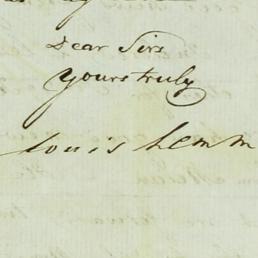 Dear Sirs
Yours truly
Louis Lemm